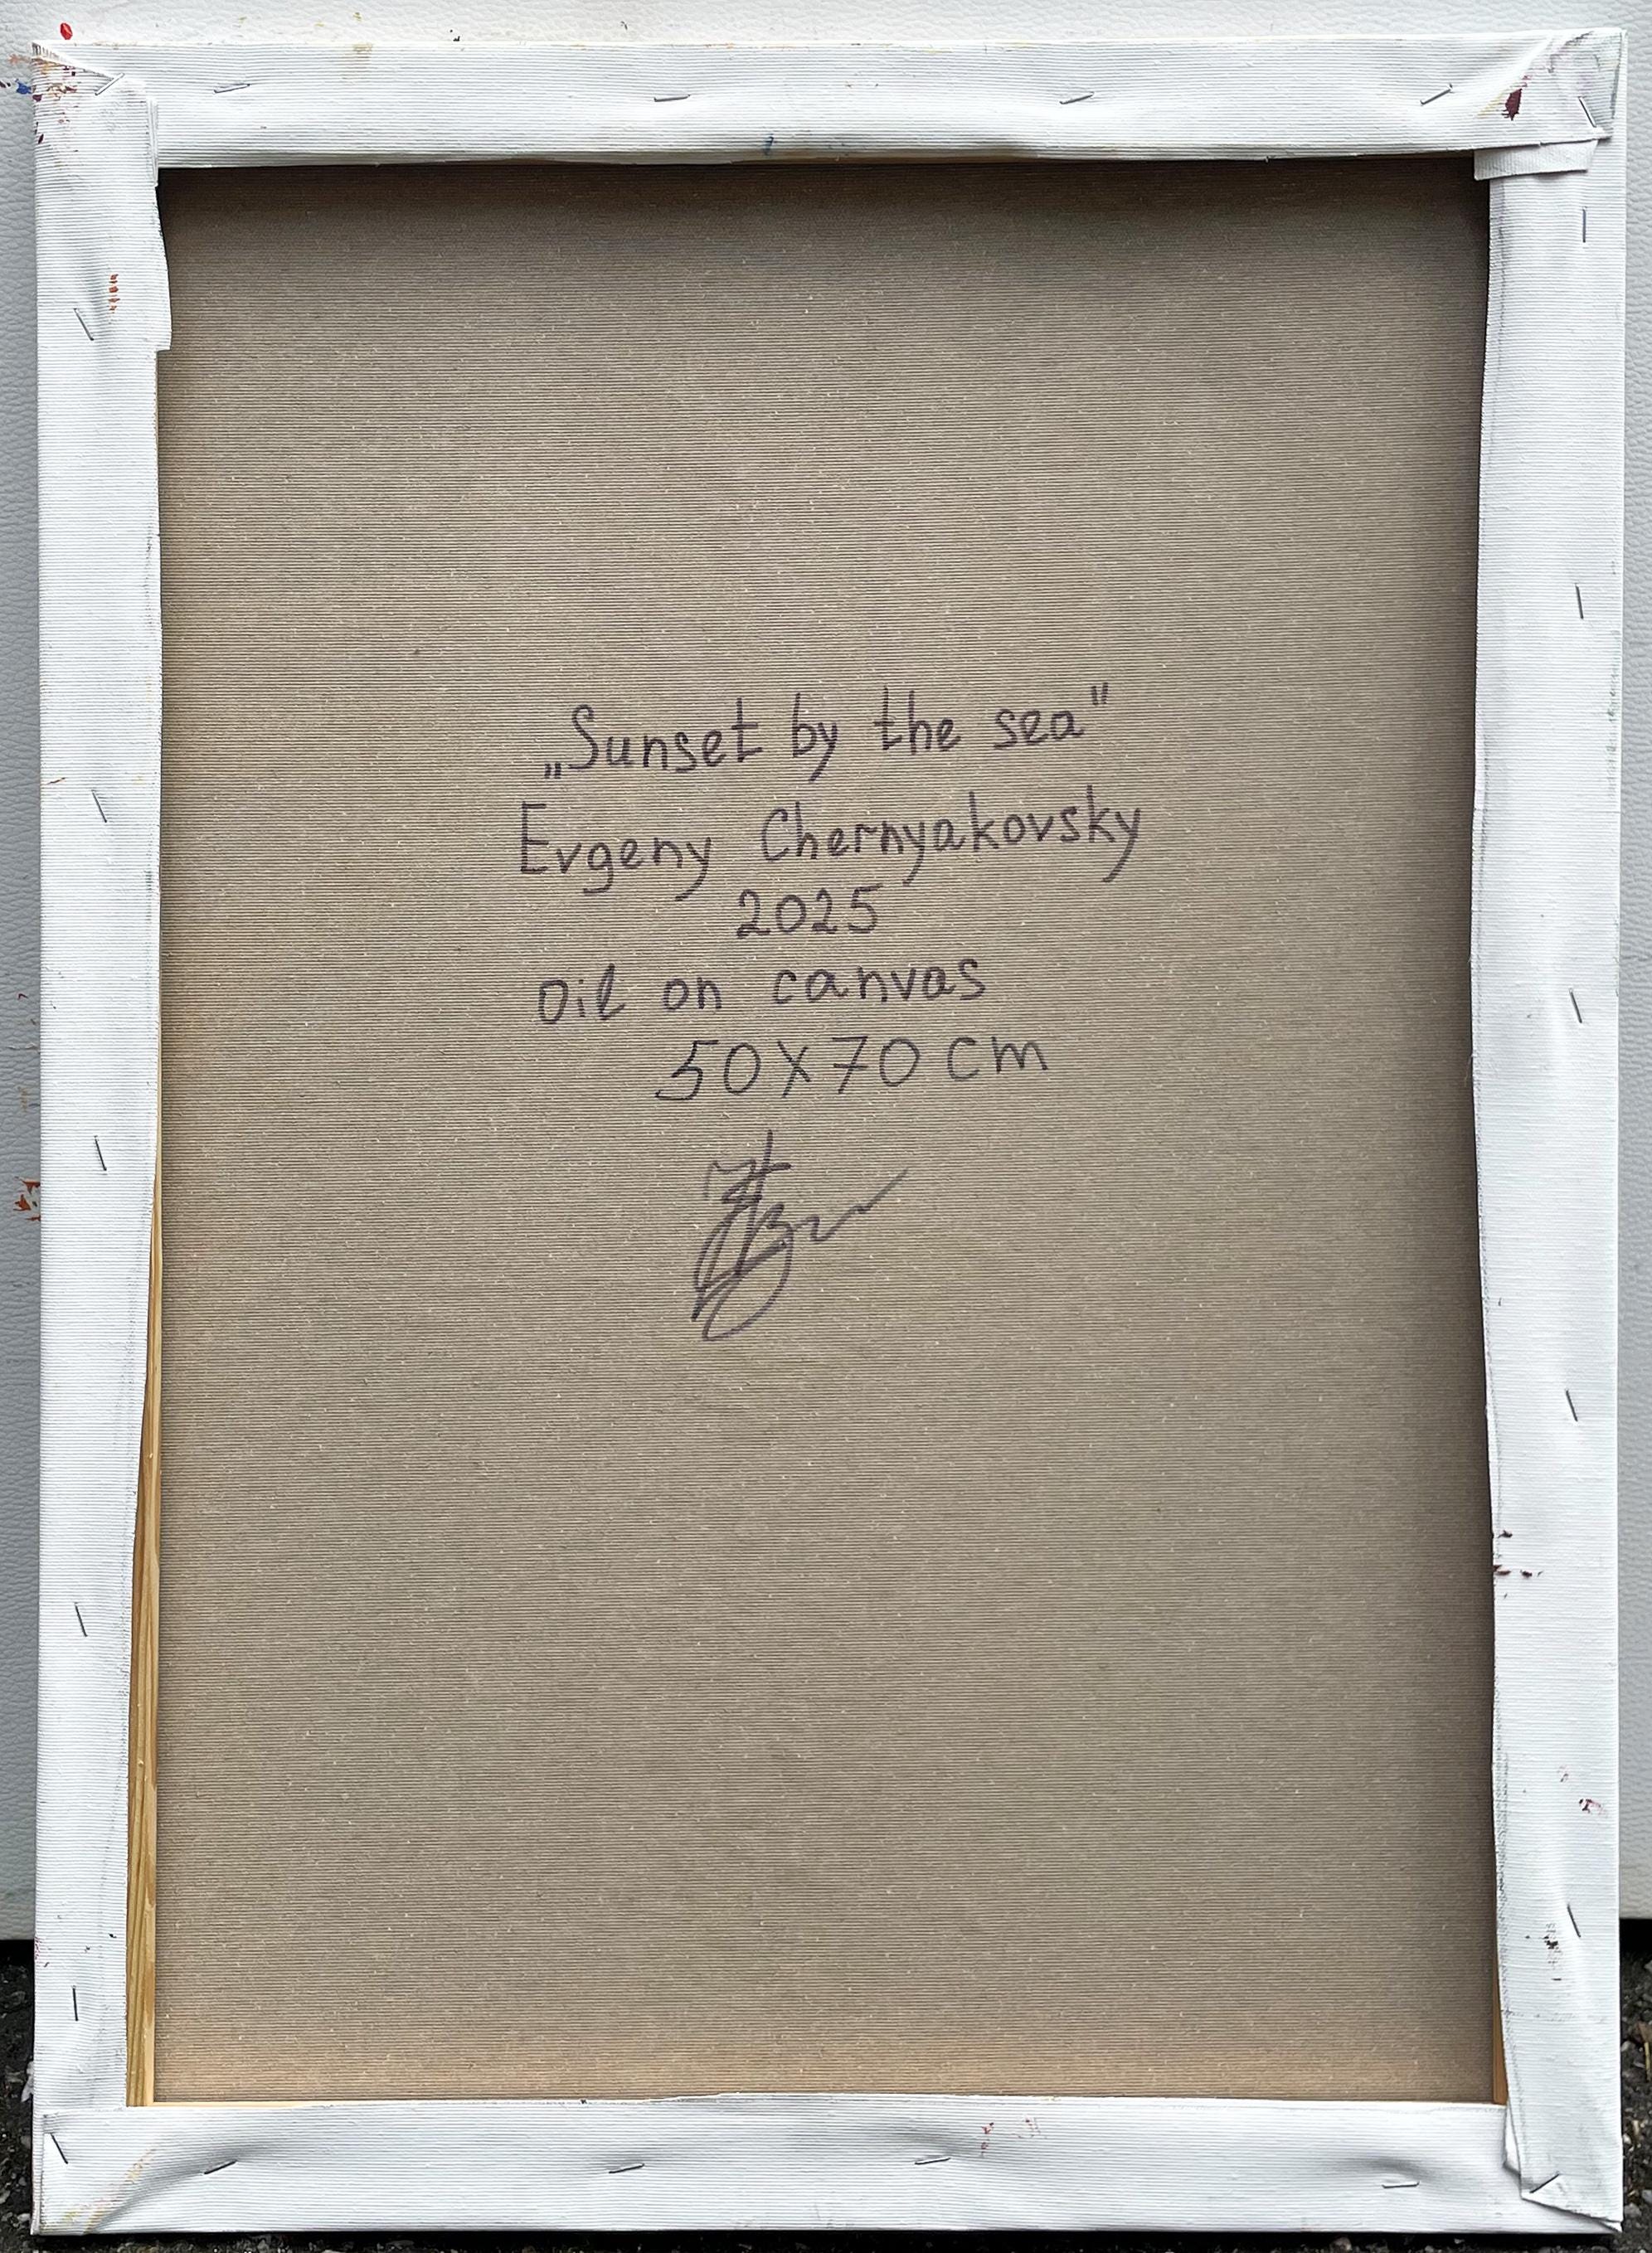 „Sunset by the sea"
Evgeny Chernyakovsky
2025
oil on canvas
50x70 cm